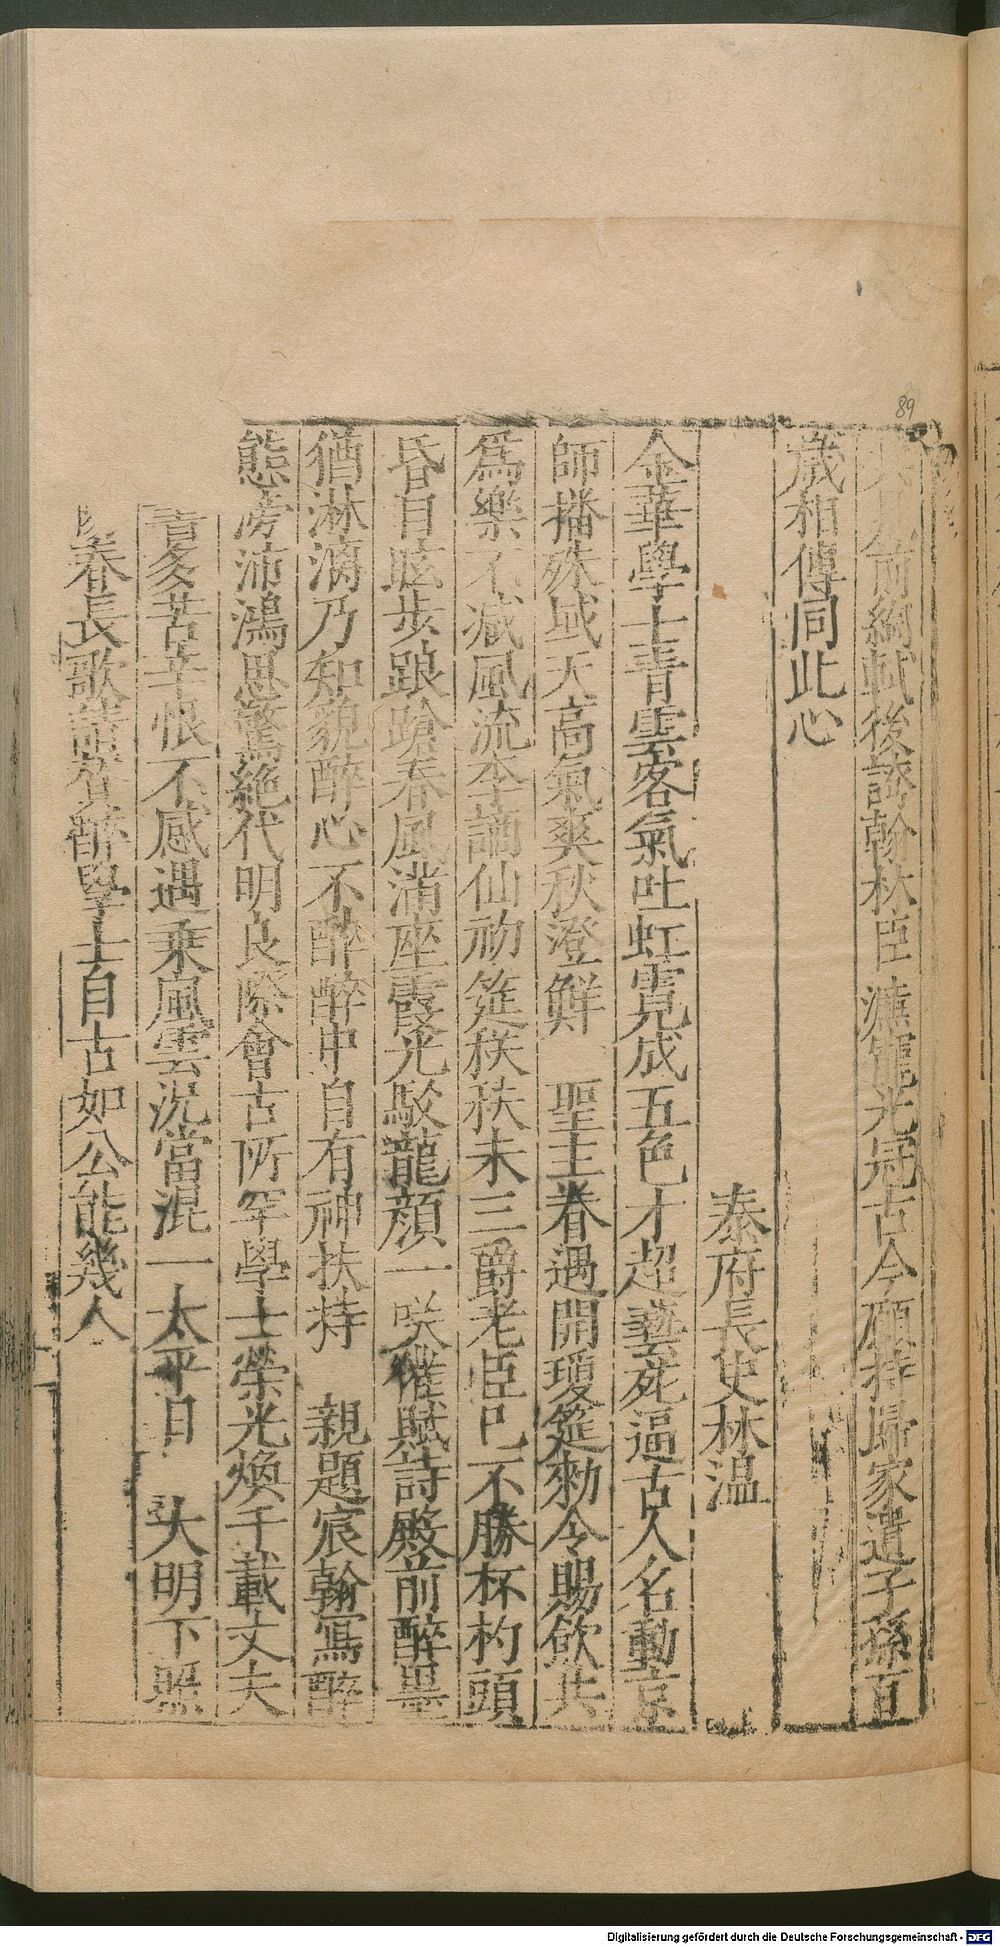 前絢軾後誇翰林臣 濂寵光冠古今願持歸家遺子孫百
歲相傳同此心
秦府長史林溫
金華學士青雲客氣吐虹霓成五色才超藝苑逼古人名動京
師播殊域天高氣爽秋澄鮮 聖主眷遇開瓊筵勑令賜飲共
為樂不減風流李謫仙初筵秩秩未三爵老臣已不勝杯杓頭
昏目眩步踉蹌春風滿座霞光駁龍顏一咲催賦詩殿前醉墨
猶淋漓乃知貌醉心不醉醉中自有神扶持 親題宸翰寫醉
態滂沛鴻思驚絕代明良際會古所罕學士榮光煥千載丈夫
苦辛恨不感遇乗風雲況當混一太平日 大明下照
春長歌醉學士自古如公能幾人
89
Digitalisierung gefördert durch die Deutsche Forschungsgemeinschaft - DFG